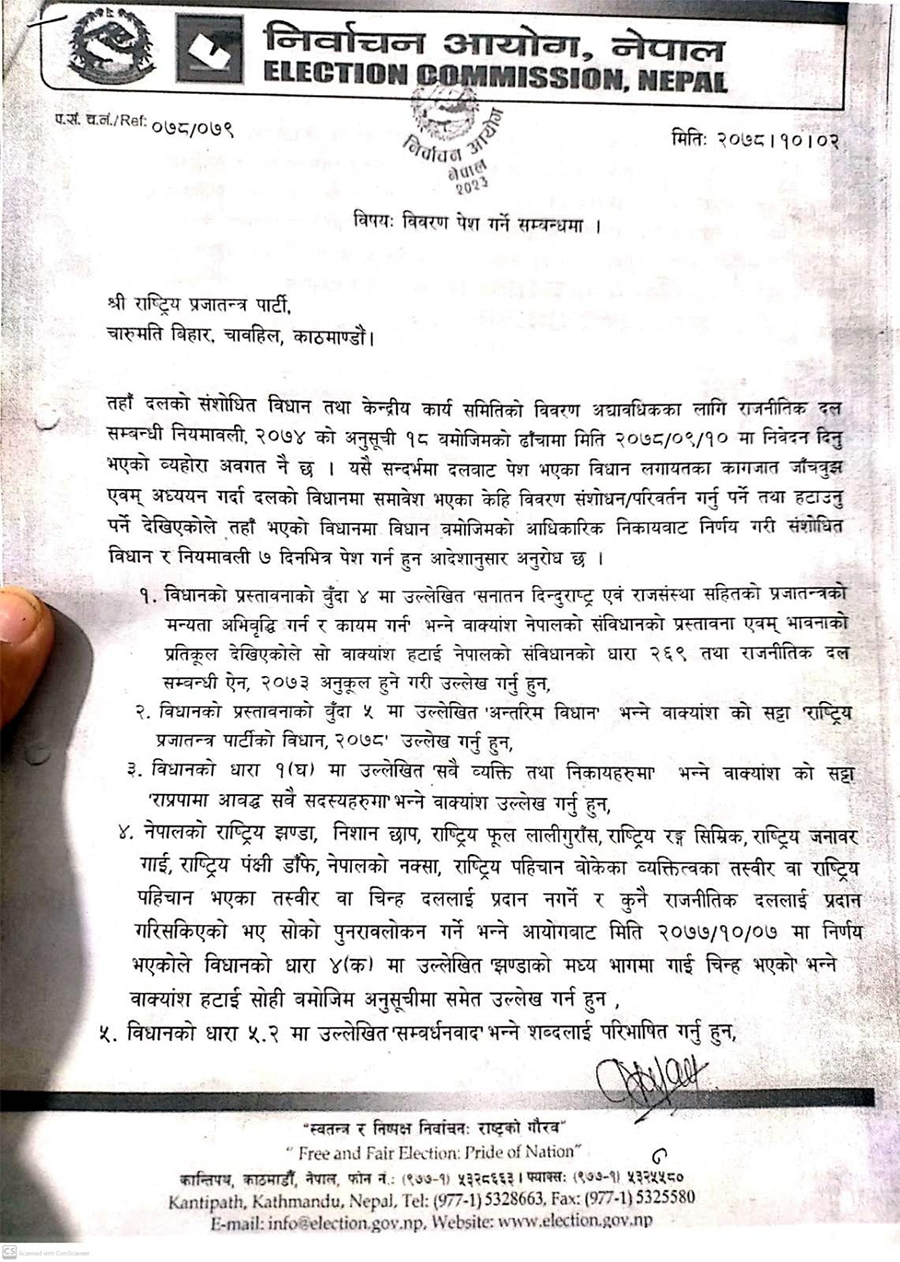 निर्वाचन आयोग, नेपाल
ELECTION COMMISSION, NEPAL
प.सं. च.नं./Ref: ०७८/०७९
मितिः २०७८।१०।०२
निर्वाचन आयोग
नेपाल
2023
विषयः विवरण पेश गर्ने सम्बन्धमा ।
श्री राष्ट्रिय प्रजातन्त्र पार्टी,
चारुमति बिहार, चावहिल, काठमाण्डौं।
तहाँ दलको संशोधित विधान तथा केन्द्रीय कार्य समितिको विवरण अद्यावधिकका लागि राजनीतिक दल
सम्बन्धी नियमावली, २०७४ को अनुसूची १८ वमोजिमको ढाँचामा मिति २०७८/०९/१० मा निवेदन दिनु
भएको व्यहोरा अवगत नै छ । यसै सन्दर्भमा दलवाट पेश भएका विधान लगायतका कागजात जाँचवुझ
एवम् अध्ययन गर्दा दलको विधानमा समावेश भएका केहि विवरण संशोधन/परिवर्तन गर्नु पर्ने तथा हटाउनु
पर्ने देखिएकोले तहाँ भएको विधानमा विधान वमोजिमको आधिकारिक निकायवाट निर्णय गरी संशोधित
विधान र नियमावली ७ दिनभित्र पेश गर्न हुन आदेशानुसार अनुरोध छ ।
१. विधानको प्रस्तावनाको वुँदा ४ मा उल्लेखित 'सनातन दिन्दुराष्ट्र एवं राजसंस्था सहितको प्रजातन्त्रको
मन्यता अभिवृद्धि गर्न र कायम गर्न' भन्ने वाक्यांश नेपालको संविधानको प्रस्तावना एवम् भावनाको
प्रतिकूल देखिएकोले सो वाक्यांश हटाई नेपालको संविधानको धारा २६९ तथा राजनीतिक दल
सम्बन्धी ऐन, २०७३ अनुकूल हुने गरी उल्लेख गर्नु हुन,
२. विधानको प्रस्तावनाको वुँदा ५ मा उल्लेखित 'अन्तरिम विधान' भन्ने वाक्यांश को सट्टा 'राष्ट्रिय
प्रजातन्त्र पार्टीको विधान, २०७८' उल्लेख गर्नु हुन,
३. विधानको धारा १(घ) मा उल्लेखित 'सवै व्यक्ति तथा निकायहरुमा' भन्ने वाक्यांश को सट्टा
'राप्रपामा आवद्ध सवै सदस्यहरुमा' भन्ने वाक्यांश उल्लेख गर्नु हुन,
४. नेपालको राष्ट्रिय झण्डा, निशान छाप, राष्ट्रिय फूल लालीगुराँस, राष्ट्रिय रङ्ग सिम्रिक, राष्ट्रिय जनावर
गाई, राष्ट्रिय पंक्षी डाँफे, नेपालको नक्सा, राष्ट्रिय पहिचान वोकेका व्यक्तित्वका तस्वीर वा राष्ट्रिय
पहिचान भएका तस्वीर वा चिन्ह दललाई प्रदान नगर्ने र कुनै राजनीतिक दललाई प्रदान
गरिसकिएको भए सोको पुनरावलोकन गर्ने भन्ने आयोगवाट मिति २०७७/१०/०७ मा निर्णय
भएकोले विधानको धारा ४(क) मा उल्लेखित 'झण्डाको मध्य भागमा गाई चिन्ह भएको' भन्ने
वाक्यांश हटाई सोही वमोजिम अनुसूचीमा समेत उल्लेख गर्न हुन ,
५. विधानको धारा ५.२ मा उल्लेखित 'सम्वर्धनवाद' भन्ने शब्दलाई परिभाषित गर्नु हुन,
"स्वतन्त्र र निष्पक्ष निर्वाचनः राष्ट्रको गौरव"
" Free and Fair Election: Pride of Nation"
कान्तिपथ, काठमाडौँ, नेपाल, फोन नं.: (९७७-१) ५३२८६६३। फ्याक्सः (९७७-१) ५३२५५८०
Kantipath, Kathmandu, Nepal, Tel: (977-1) 5328663, Fax: (977-1) 5325580
E-mail: info@election.gov.np, Website: www.election.gov.np
CS Scanned with CamScanner